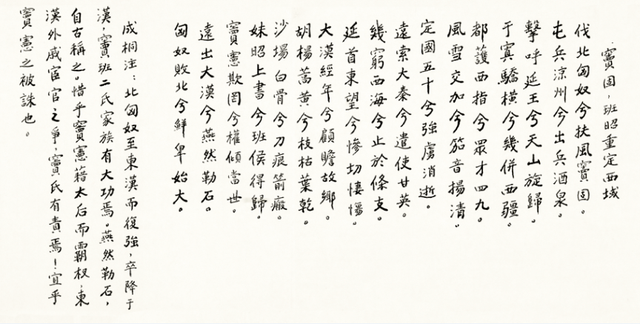 竇固，班昭重定西域
伐北匈奴兮扶風竇固。
屯兵涼州兮出兵酒泉。
擊呼延王兮天山旋歸。
于寘驕橫兮幾併西疆。
都護西指兮眾才四九。
風雪交加兮笳音揚清。
定國五十兮強虜消逝。
遠索大秦兮遣使甘英。
幾窮西海兮止於條支。
延首東望兮慘切悽悽。
大漠經年兮顧瞻故鄉。
胡楊蒿黃兮枝枯葉乾。
沙場白骨兮刀痕箭瘢。
妹昭上書兮班侯得歸。
竇憲欺罔兮權傾當世。
遠出大漠兮燕然勒石。
匈奴敗北兮鮮卑始大。
成桐注：北匈奴至東漢而復強，卒降于
漢，竇班二氏家族有大功焉。燕然勒石，
自古稱之。惜乎竇憲藉太后而霸权，東
漢外戚宦官之爭，竇氏有責焉！宜乎
竇憲之被誅也。